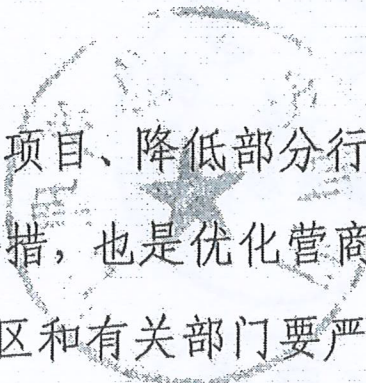 项目、降低部分行
措，也是优化营商
区和有关部门要严